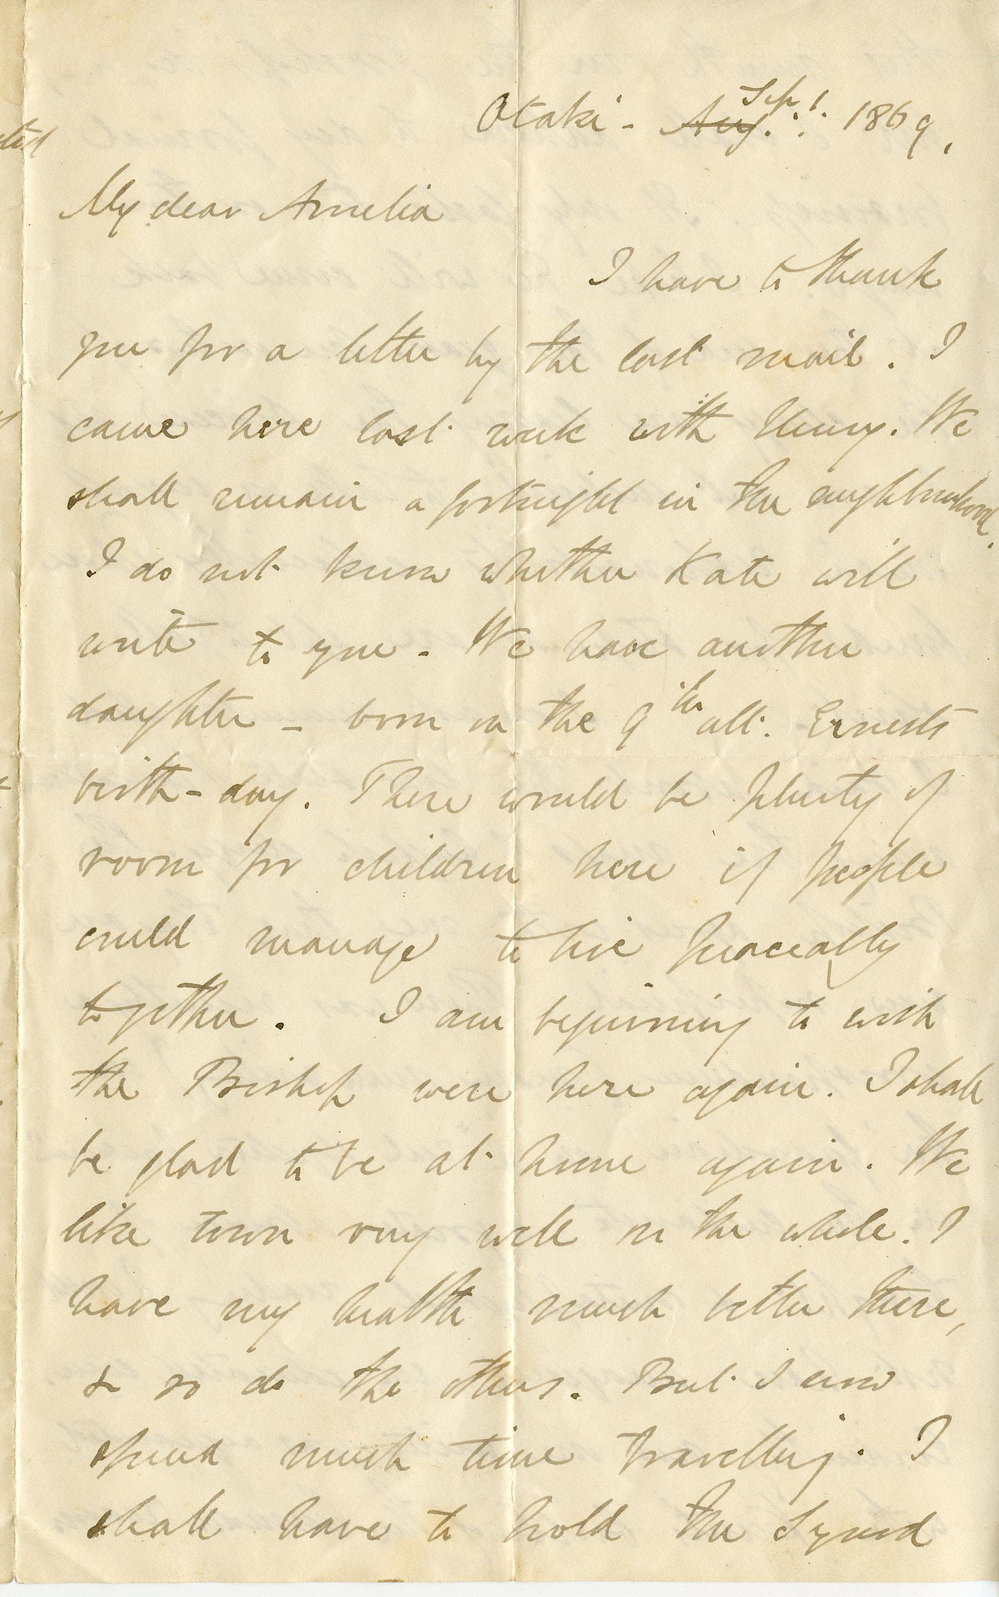 Otaki - Aug. Sep. 1. 1869,
My dear Amelia
I have to thank
you for a letter by the last mail. I
came here last week with Henry. We
shall remain a fortnight in the neighbourhood.
I do not know whether Kate will
write to you. We have another
daughter - born on the 9th ult. Ernest's
birth-day. There would be plenty of
room for children here if people
could manage to live peaceably
together. I am beginning to wish
the Bishop were here again. I shall
be glad to be at home again. We
like town very well on the whole. I
have my health much better there,
& so do the others. But I now
spend much time travelling. I
shall have to hold the Synod